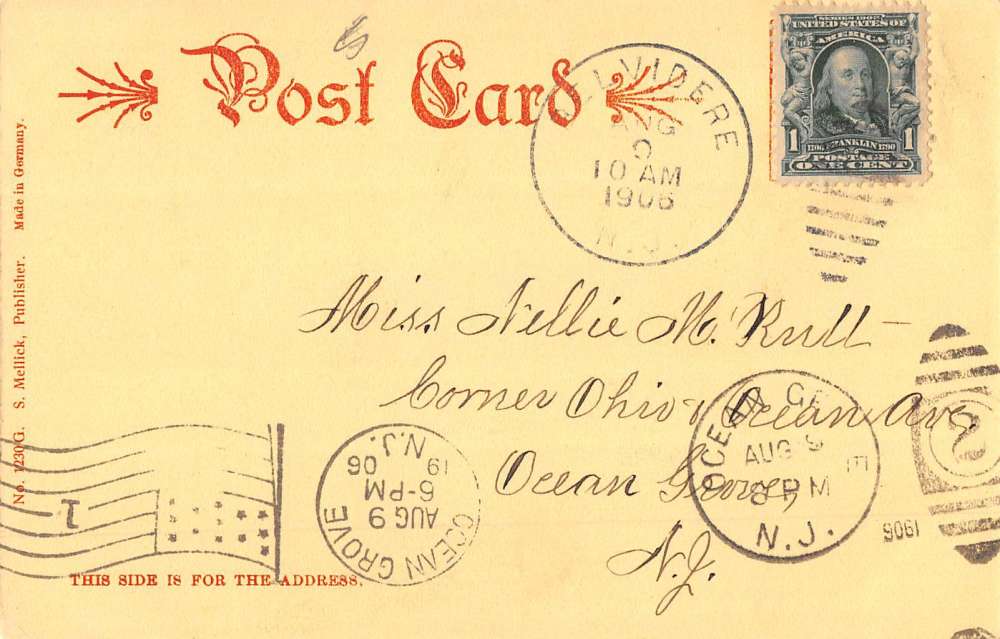 Post Card
BELVIDERE
AUG
9
10 AM
1906
N.J.
SERIES 1902
UNITED STATES OF
AMERICA
1 1
1706 FRANKLIN 1790
POSTAGE
ONE CENT
Made in Germany.
S. Mellick, Publisher.
No. 1230G.
Miss Nellie M. Rull
Corner Ohio & Ocean Ave,
Ocean Grove,
N.J.
OCEAN GROVE
AUG 9
PM
N.J.
2
1906
OCEAN GROVE
AUG 9
6-PM
19 06
N.J.
1
THIS SIDE IS FOR THE ADDRESS.